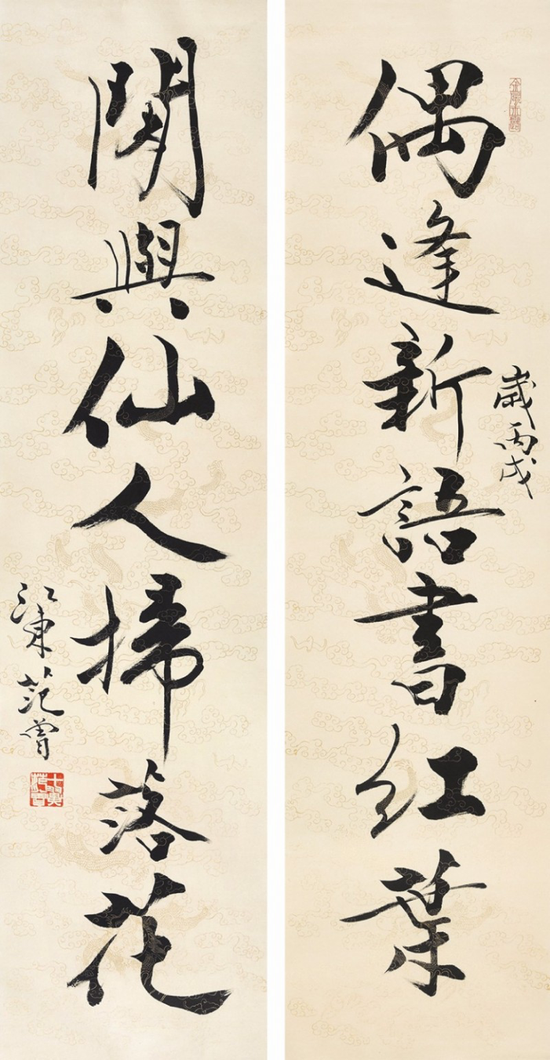 偶逢新語書紅葉
歲丙戌
閒與仙人掃落花
江東范曾